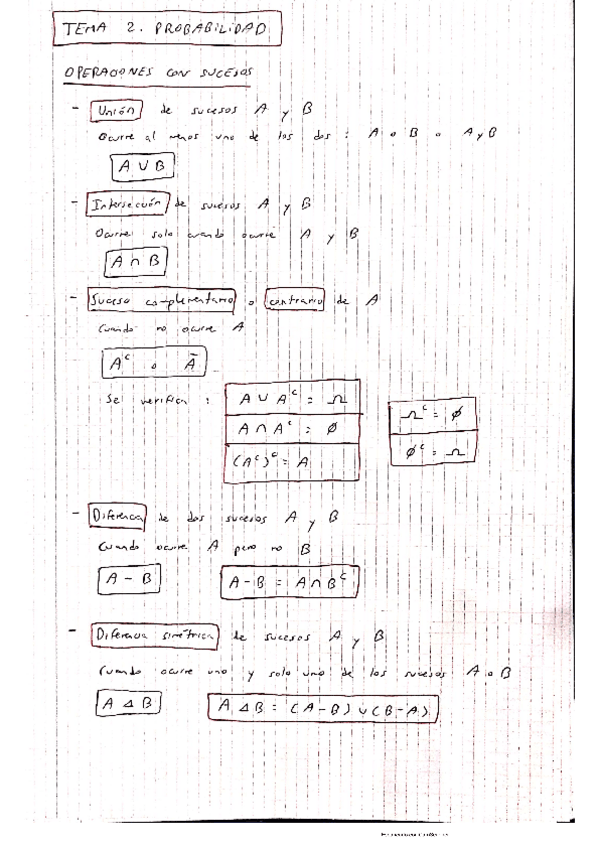 TEMA 2. PROBABILIDAD
OPERACIONES CON SUCESOS
- Unión de sucesos A y B
Ocurre al menos uno de los dos : A o B o A y B
A ∪ B
- Intersección de sucesos A y B
Ocurre solo cuando ocurre A y B
A ∩ B
- Suceso complementario o contrario de A
Cuando no ocurre A
Aᶜ o Ā
Se verifica : A ∪ Aᶜ = Ω
A ∩ Aᶜ = ∅
(Aᶜ)ᶜ = A
Ωᶜ = ∅
∅ᶜ = Ω
- Diferencia de dos sucesos A y B
Cuando ocurre A pero no B
A - B A - B = A ∩ Bᶜ
- Diferencia simétrica de sucesos A y B
Cuando ocurre uno y solo uno de los sucesos A o B
A Δ B A Δ B = (A - B) ∪ (B - A)